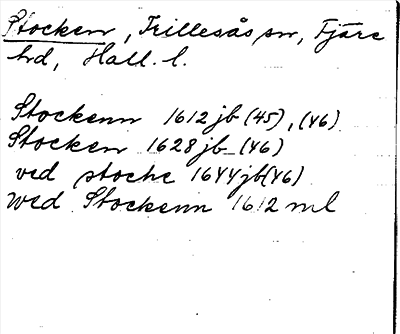 Stocken, Frillesås sn, Fjäre
hd, Hall. l.
Stockenn 1612 jb (45), (46)
Stocken 1628 jb (46)
ved stocke 1644 jb (46)
wed Stockenn 1612 ml